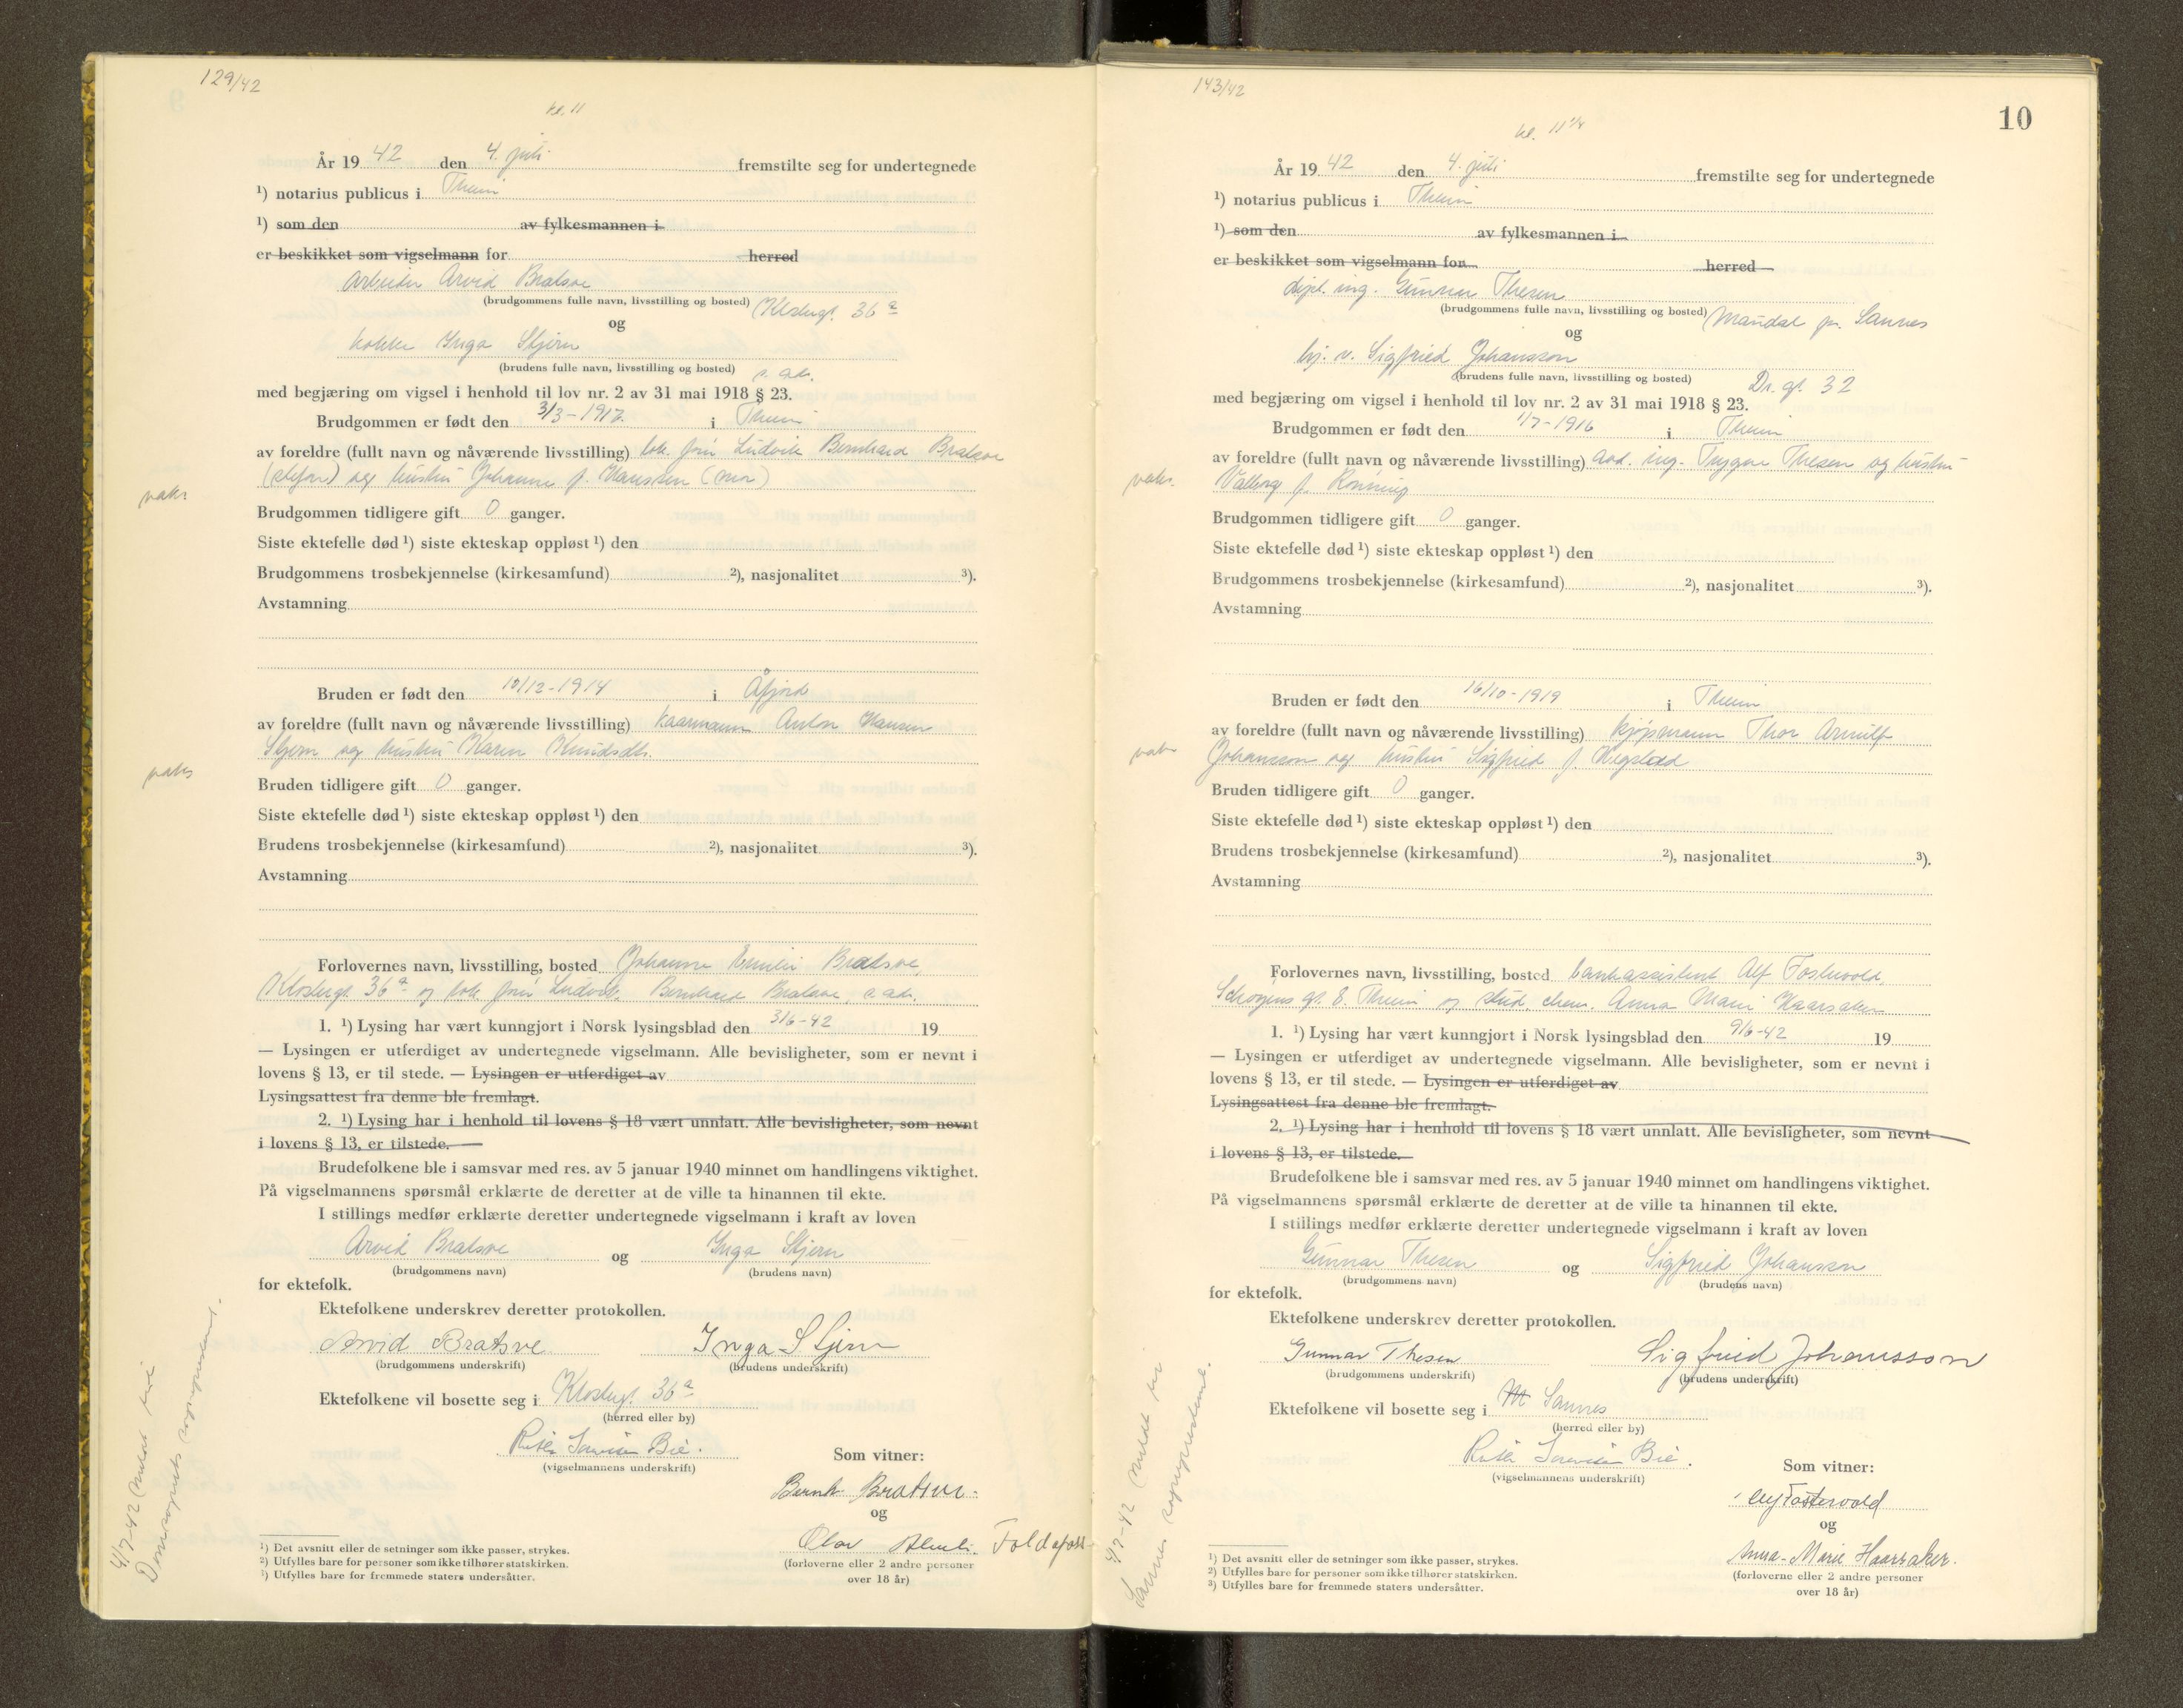 129/42
kl. 11
År 19 42 den 4. juli fremstilte seg for undertegnede
¹) notarius publicus i Thrim
¹) som den av fylkesmannen i
er beskikket som vigselmann for herred
Arbeider Arvid Bratsve
(brudgommens fulle navn, livsstilling og bosted) Klostergt. 36 a
og
kokke Inga Stjern
(brudens fulle navn, livsstilling og bosted) s. adr.
med begjæring om vigsel i henhold til lov nr. 2 av 31 mai 1918 § 23.
Brudgommen er født den 3/3-1917. i Thrim
av foreldre (fullt navn og nåværende livsstilling) lok. fører Ludvik Bernhard Bratsve
(stefar) og hustru Johanne f. Hanssen (mor)
vaks.
Brudgommen tidligere gift 0 ganger.
Siste ektefelle død ¹) siste ekteskap oppløst ¹) den
Brudgommens trosbekjennelse (kirkesamfund) ²), nasjonalitet ³).
Avstamning
Bruden er født den 10/12-1914 i Åfjord
av foreldre (fullt navn og nåværende livsstilling) kaarmann Anton Hansen
Stjern og hustru Karen Knudsdtr.
vaks
Bruden tidligere gift 0 ganger.
Siste ektefelle død ¹) siste ekteskap oppløst ¹) den
Brudens trosbekjennelse (kirkesamfund) ²), nasjonalitet ³).
Avstamning
Forlovernes navn, livsstilling, bosted Johanne Emilie Bratsve,
Klostergt. 36 a og lok. fører Ludvik Bernhard Bratsve, s. adr.
1. ¹) Lysing har vært kunngjort i Norsk lysingsblad den 3/6-42 19
— Lysingen er utferdiget av undertegnede vigselmann. Alle bevisligheter, som er nevnt i
lovens § 13, er til stede. — Lysingen er utferdiget av
Lysingsattest fra denne ble fremlagt.
2. ¹) Lysing har i henhold til lovens § 18 vært unnlatt. Alle bevisligheter, som nevnt
i lovens § 13, er tilstede.
Brudefolkene ble i samsvar med res. av 5 januar 1940 minnet om handlingens viktighet.
På vigselmannens spørsmål erklærte de deretter at de ville ta hinannen til ekte.
I stillings medfør erklærte deretter undertegnede vigselmann i kraft av loven
Arvid Bratsve og Inga Stjern
(brudgommens navn) (brudens navn)
for ektefolk.
Ektefolkene underskrev deretter protokollen.
Arvid Bratsve Inga Stjern
(brudgommens underskrift) (brudens underskrift)
Ektefolkene vil bosette seg i Klostergt. 36 a
(herred eller by)
(vigselmannens underskrift)
Som vitner:
Bernh. Bratsve.
og
Olav
(forloverne eller 2 andre personer
over 18 år)
4/7-42 meldt til
Domsognets sogneprestemb.
¹) Det avsnitt eller de setninger som ikke passer, strykes.
²) Utfylles bare for personer som ikke tilhører statskirken.
³) Utfylles bare for fremmede staters undersåtter.
143/42
10
kl. 11 1/4
År 19 42 den 4. juli fremstilte seg for undertegnede
¹) notarius publicus i Thrim
¹) som den av fylkesmannen i
er beskikket som vigselmann for herred
dipl. ing. Gunnar Thesen
(brudgommens fulle navn, livsstilling og bosted) Mandal pr. Sannes
og
hj. v. Sigfried Johansson
(brudens fulle navn, livsstilling og bosted) Dr. gt. 32
med begjæring om vigsel i henhold til lov nr. 2 av 31 mai 1918 § 23.
Brudgommen er født den 1/7-1916 i Thrim
av foreldre (fullt navn og nåværende livsstilling) avd. ing. Trygve Thesen og hustru
Valborg f. Rönning
vaks.
Brudgommen tidligere gift 0 ganger.
Siste ektefelle død ¹) siste ekteskap oppløst ¹) den
Brudgommens trosbekjennelse (kirkesamfund) ²), nasjonalitet ³).
Avstamning
Bruden er født den 16/10-1919 i Thrim
av foreldre (fullt navn og nåværende livsstilling) kjøpmann Thor Arnulf
Johansson og hustru Sigfried f. Hegstad
vaks
Bruden tidligere gift 0 ganger.
Siste ektefelle død ¹) siste ekteskap oppløst ¹) den
Brudens trosbekjennelse (kirkesamfund) ²), nasjonalitet ³).
Avstamning
Forlovernes navn, livsstilling, bosted bankassistent Alf Fostervold,
gt. 8. Thrim og stud. chem. Anna Marie Haarsaker
1. ¹) Lysing har vært kunngjort i Norsk lysingsblad den 9/6-42 19
— Lysingen er utferdiget av undertegnede vigselmann. Alle bevisligheter, som er nevnt i
lovens § 13, er til stede. — Lysingen er utferdiget av
Lysingsattest fra denne ble fremlagt.
2. ¹) Lysing har i henhold til lovens § 18 vært unnlatt. Alle bevisligheter, som nevnt
i lovens § 13, er tilstede.
Brudefolkene ble i samsvar med res. av 5 januar 1940 minnet om handlingens viktighet.
På vigselmannens spørsmål erklærte de deretter at de ville ta hinannen til ekte.
I stillings medfør erklærte deretter undertegnede vigselmann i kraft av loven
Gunnar Thesen og Sigfried Johansson
(brudgommens navn) (brudens navn)
for ektefolk.
Ektefolkene underskrev deretter protokollen.
Gunnar Thesen Sigfried Johansson
(brudgommens underskrift) (brudens underskrift)
Ektefolkene vil bosette seg i Sannes
(herred eller by)
(vigselmannens underskrift)
Som vitner:
Alf Fostervold
og
Anna-Marie Haarsaker.
(forloverne eller 2 andre personer
over 18 år)
4/7-42 meldt til
Sannes sogneprestemb.
¹) Det avsnitt eller de setninger som ikke passer, strykes.
²) Utfylles bare for personer som ikke tilhører statskirken.
³) Utfylles bare for fremmede staters undersåtter.